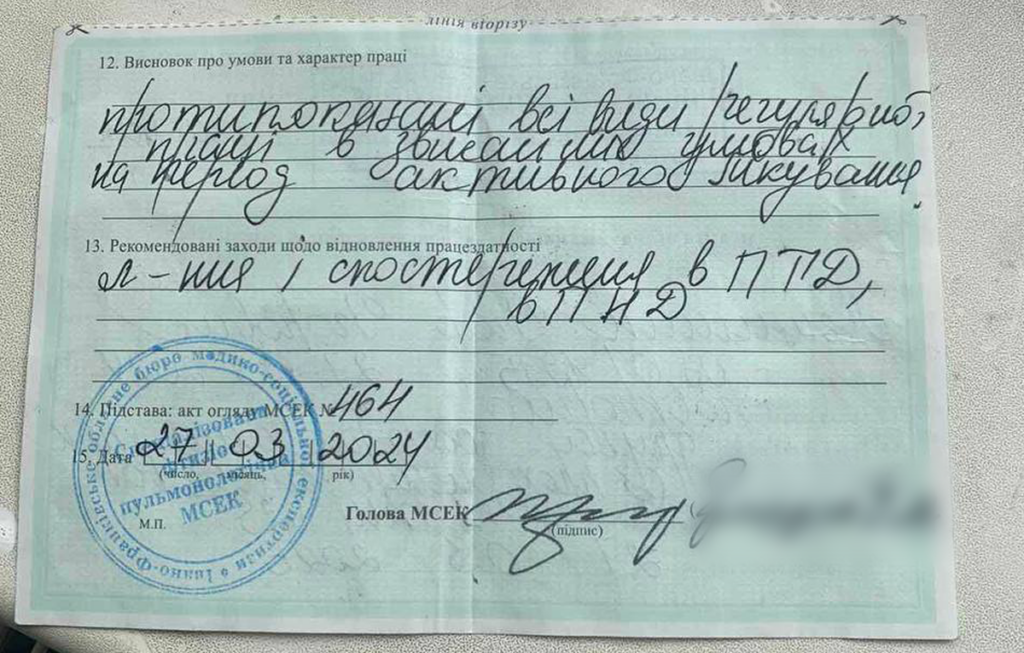 лінія відрізу
12. Висновок про умови та характер праці
протипоказані всі види регулярної
праці в звичайних умовах
на період активного лікування.
13. Рекомендовані заходи щодо відновлення працездатності
л-ння і спостереження в ПТД,
в ПНД
14. Підстава: акт огляду МСЕК № 464
15. Дата 27 03 2024
(число, місяць, рік)
М.П.
Голова МСЕК
(підпис)
Івано-Франківське обласне бюро медико-соціальної експертизи
Спеціалізована
фтизіо-
пульмонологічна
МСЕК